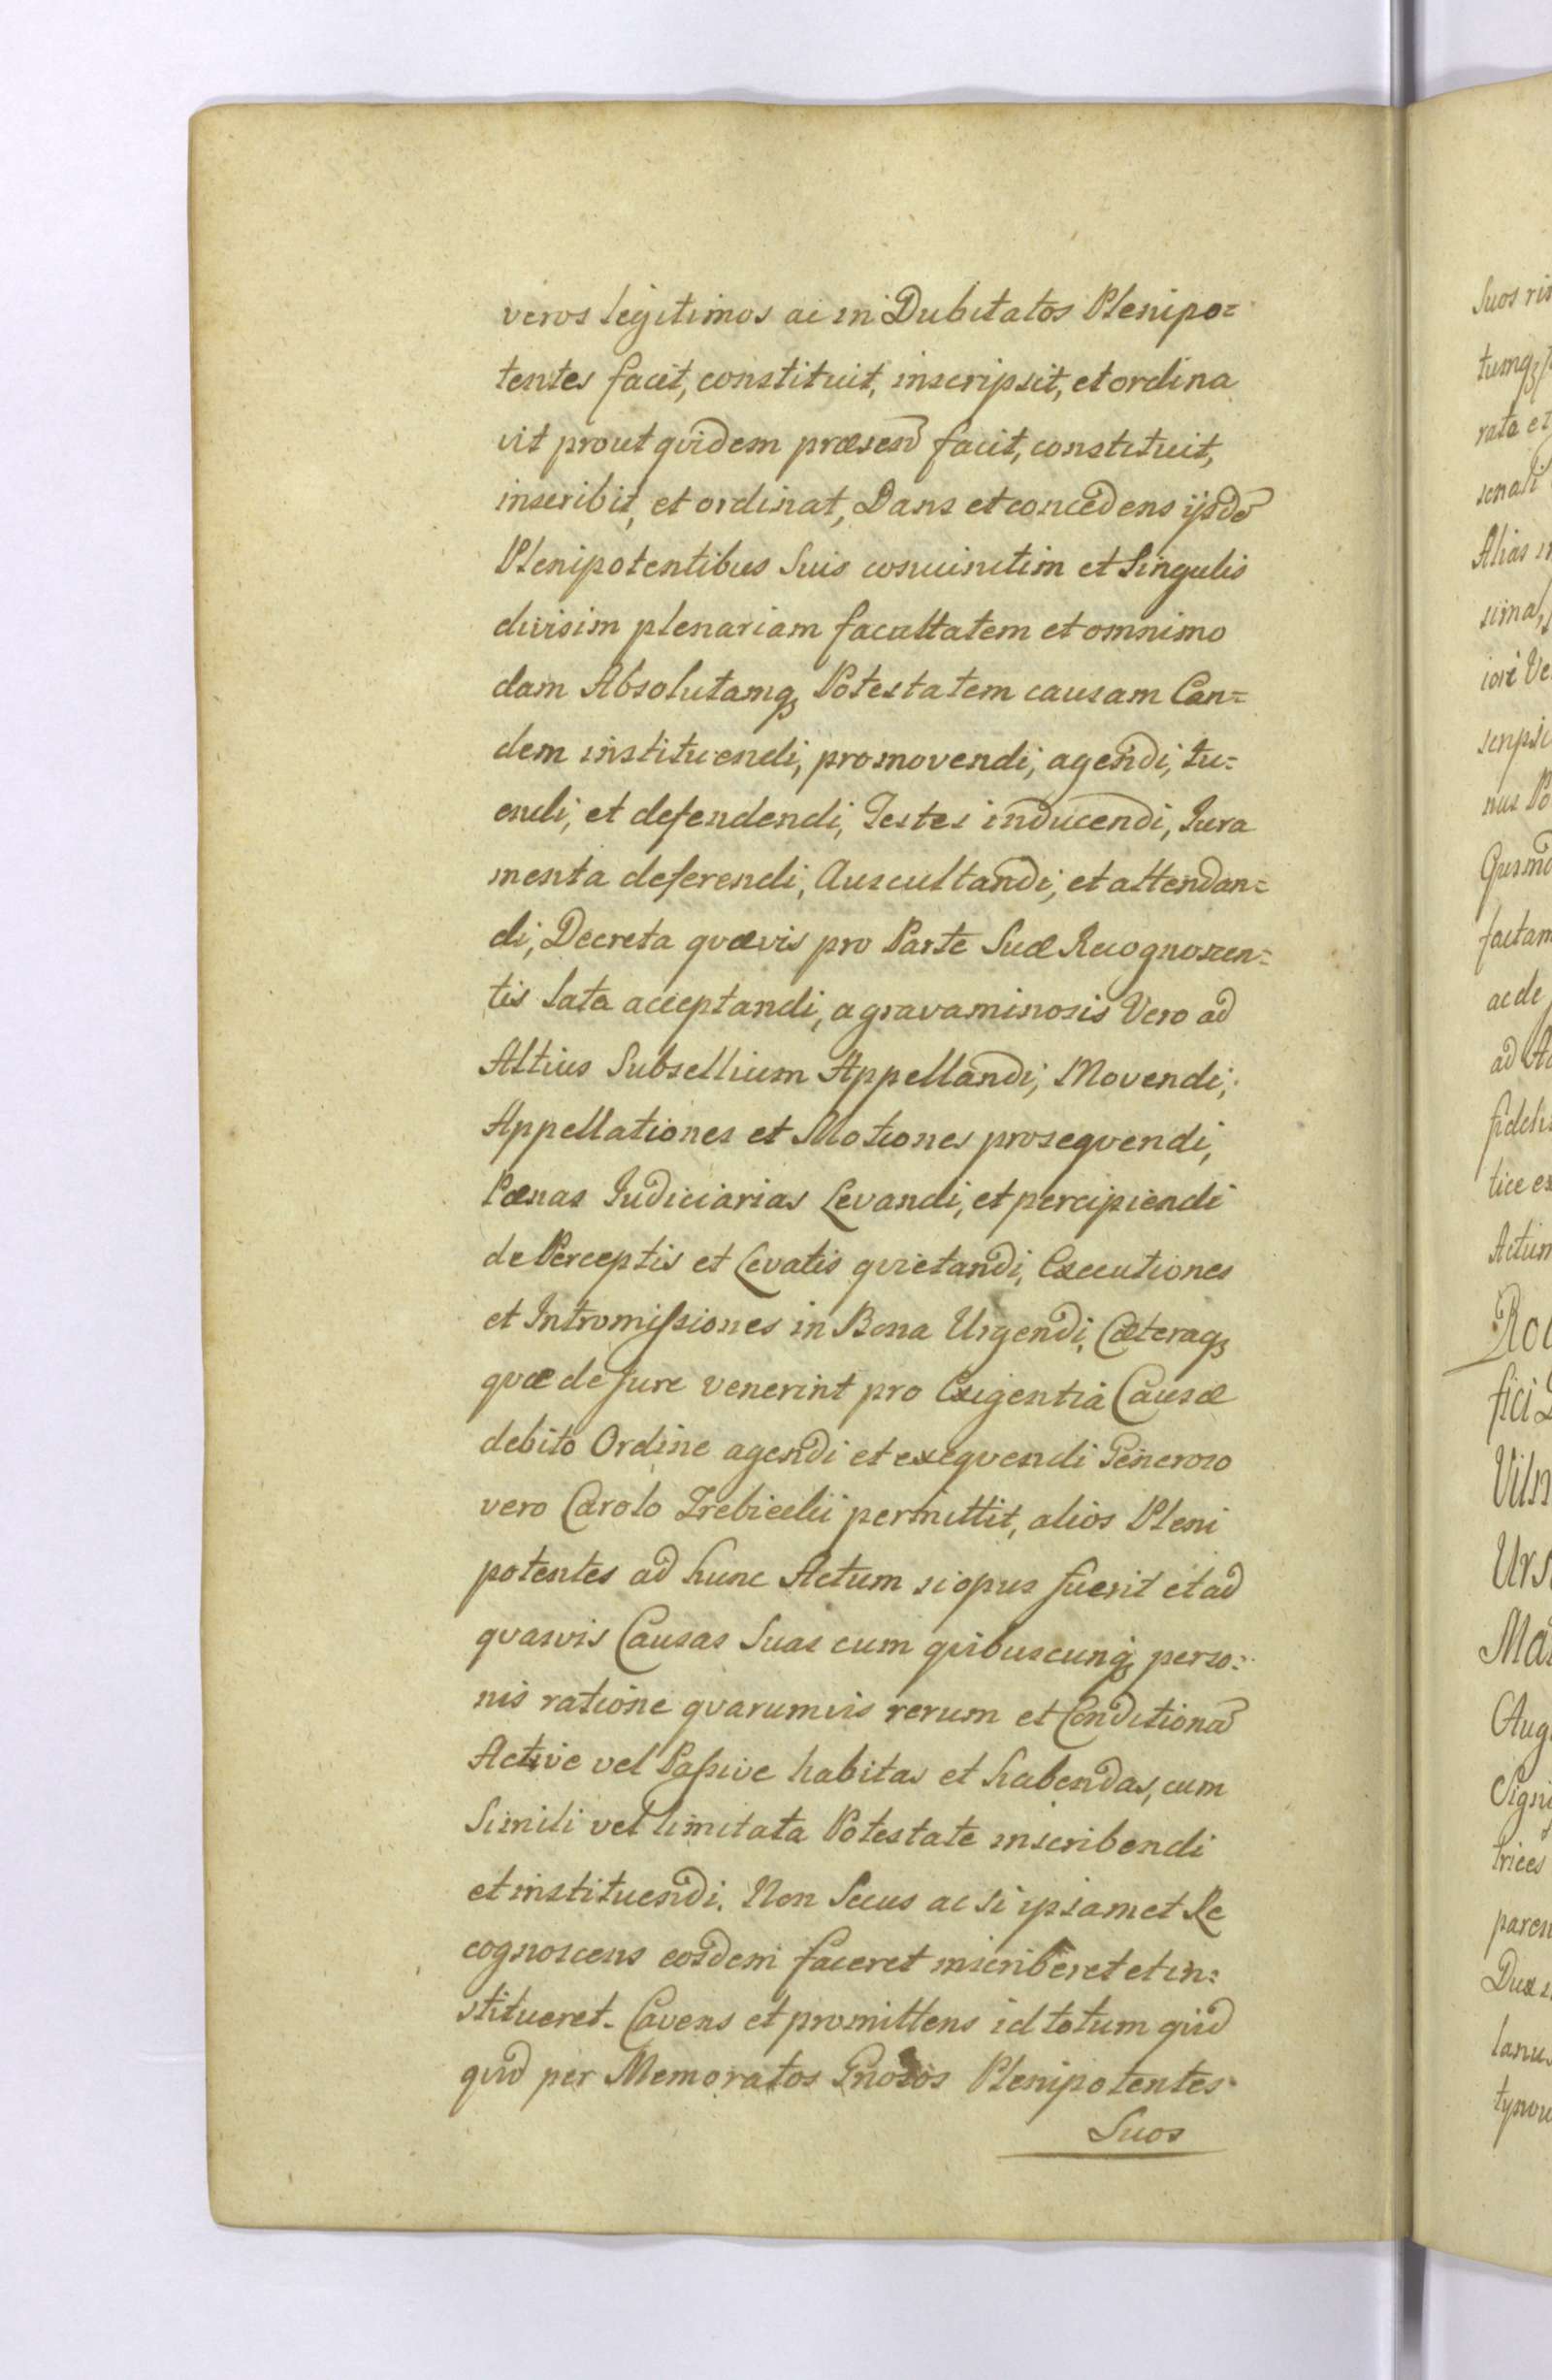 veros legitimos ac in Dubitatos Plenipo=
tentes facit, constituit, inscripsit, et ordina
vit prout qvidem præsend facit, constituit,
inscribit, et ordinat, Dans et concedens ijsdē
Plenipotentibus Suis conuinctim et Singulis
divisim plenariam facultatem et omnimo
dam Absolutamq; Potestatem causam Ean=
dem instituendi, promovendi, agendi, tu=
endi, et defendendi, Testes inducendi, Jura
menta deferendi, Auscultandi, et attendan=
di, Decreta qvævis pro Parte Suæ Recognoscen=
tis lata acceptandi, a gravaminosis Vero ad
Altius Subsellium Appellandi, Movendi,
Appellationes et Motiones proseqvendi,
Pœnas Judiciarias Levandi, et percipiendi
de Perceptis et Levatis qvietandi, Executiones
et Intromissiones in Bona Urgendi, Cæteraq;
qvæ de Jure venerint pro Exigentia Causæ
debito Ordine agendi et exeqvendi Generoso
vero Carolo Trebicelii permittit, alios Pleni
potentes ad hunc Actum si opus fuerit et ad
qvasvis Causas Suas cum qvibuscunq; perso=
nis ratione qvarumvis rerum et Conditionū
Active vel Passive habitas et habendas, cum
Simili vel limitata Potestate inscribendi
et instituendi. Non Secus ac Si ipsamet Re
cognoscens eosdem faceret inscriberet et in=
stitueret. Cavens et promittens id totum qvid
qvid per Memoratos Gnosos Plenipotentes
Suos
Suos
rata et
Alias
ac de
ad
Actum